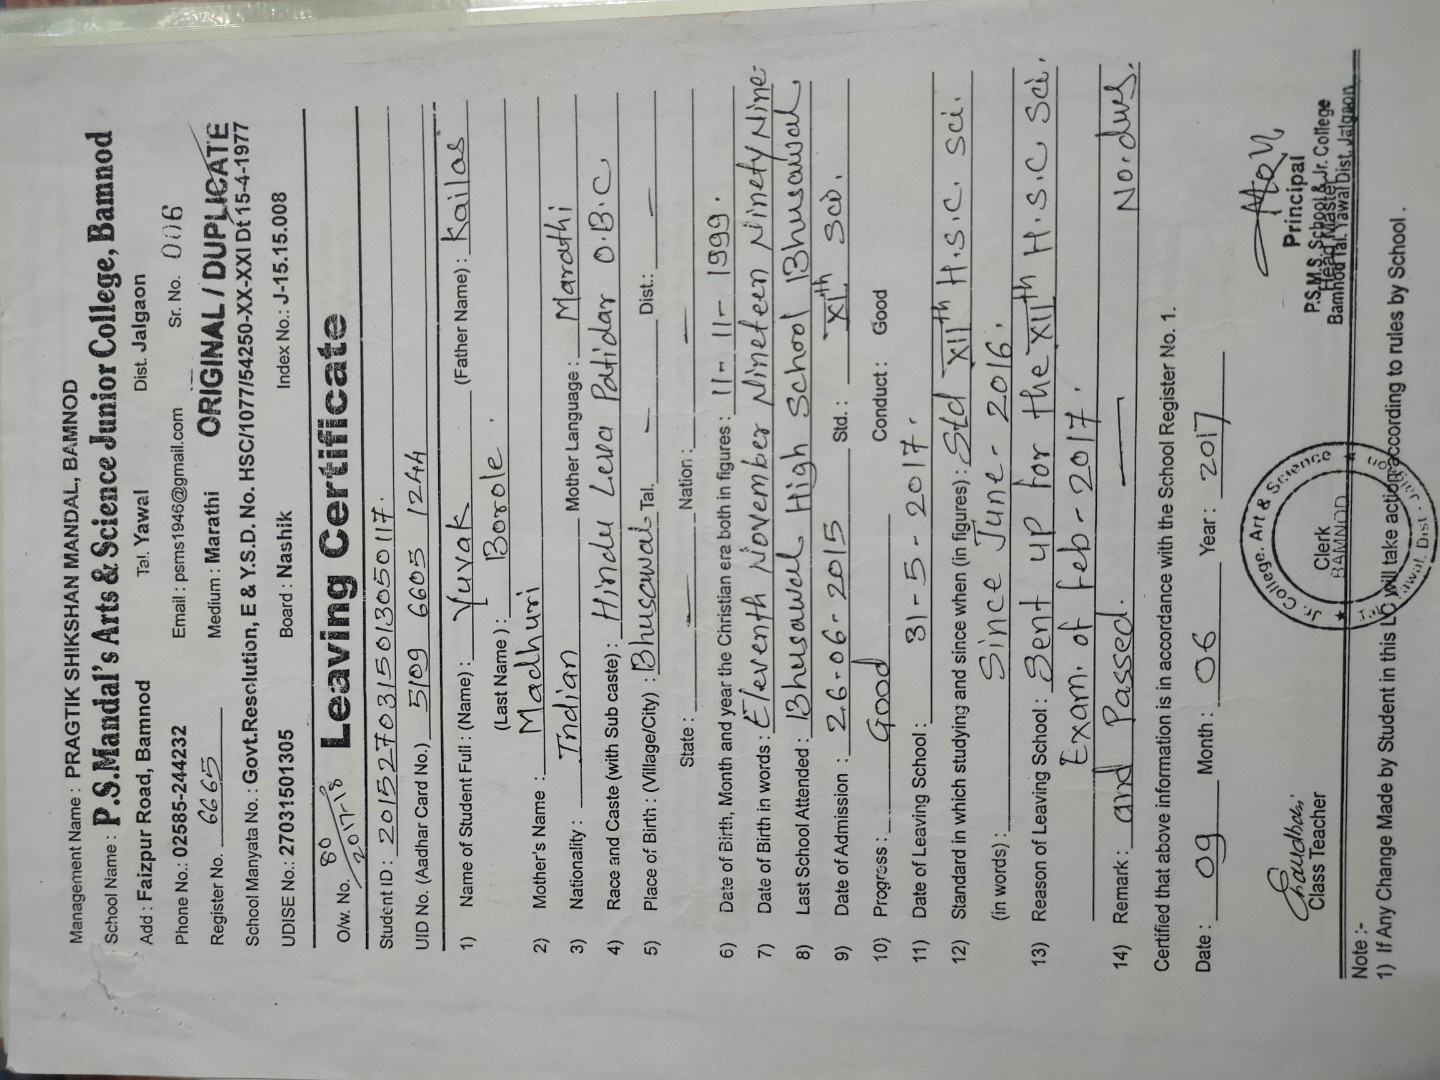 Management Name : PRAGTIK SHIKSHAN MANDAL, BAMNOD
School Name : P.S.Mandal's Arts & Science Junior College, Bamnod
Add : Faizpur Road, Bamnod Tal. Yawal Dist. Jalgaon
Phone No.: 02585-244232 Email : psms1946@gmail.com Sr. No. 006
Register No. 6665 Medium : Marathi ORIGINAL / DUPLICATE
School Manyata No. : Govt.Resolution, E & Y.S.D. No. HSC/1077/54250-XX-XXI Dt 15-4-1977
UDISE No.: 27031501305 Board : Nashik Index No.: J-15.15.008
O/w. No. 80/2017-18 Leaving Certificate
Student ID : 2015270315013050117.
UID No. (Aadhar Card No.) 5109 6605 1244
1) Name of Student Full : (Name) : Yuvak (Father Name) : Kailas
(Last Name ) : Borole .
2) Mother's Name : Madhuri
3) Nationality : Indian Mother Language : Marathi
4) Race and Caste (with Sub caste) : Hindu Leva Patidar O.B.C
5) Place of Birth : (Village/City) : Bhusawal Tal. — Dist.: —
State : — Nation : —
6) Date of Birth, Month and year the Christian era both in figures : 11 - 11 - 1999 .
7) Date of Birth in words : Eleventh November Nineteen Ninety Nine-
8) Last School Attended : Bhusawal High School Bhusawal
9) Date of Admission : 26-06-2015 Std. : XIth sci.
10) Progress : Good Conduct : Good
11) Date of Leaving School : 31-5-2017.
12) Standard in which studying and since when (in figures) : Std XIIth H.S.C. sci.
(in words) : Since June - 2016.
13) Reason of Leaving School : Sent up for the XIIth H.S.C sci.
Exam. of Feb - 2017 .
14) Remark : and Passed. — No.dues.
Certified that above information is in accordance with the School Register No. 1.
Date : 09 Month : 06 Year : 2017
Class Teacher
Clerk
BAMNOD
Jr. College. Art & Science
Principal
P.S.M.S. School & Jr. College
Head Master
Bamnod Tal. Yawal Dist. Jalgaon
Note :-
1) If Any Change Made by Student in this LC will take action according to rules by School .